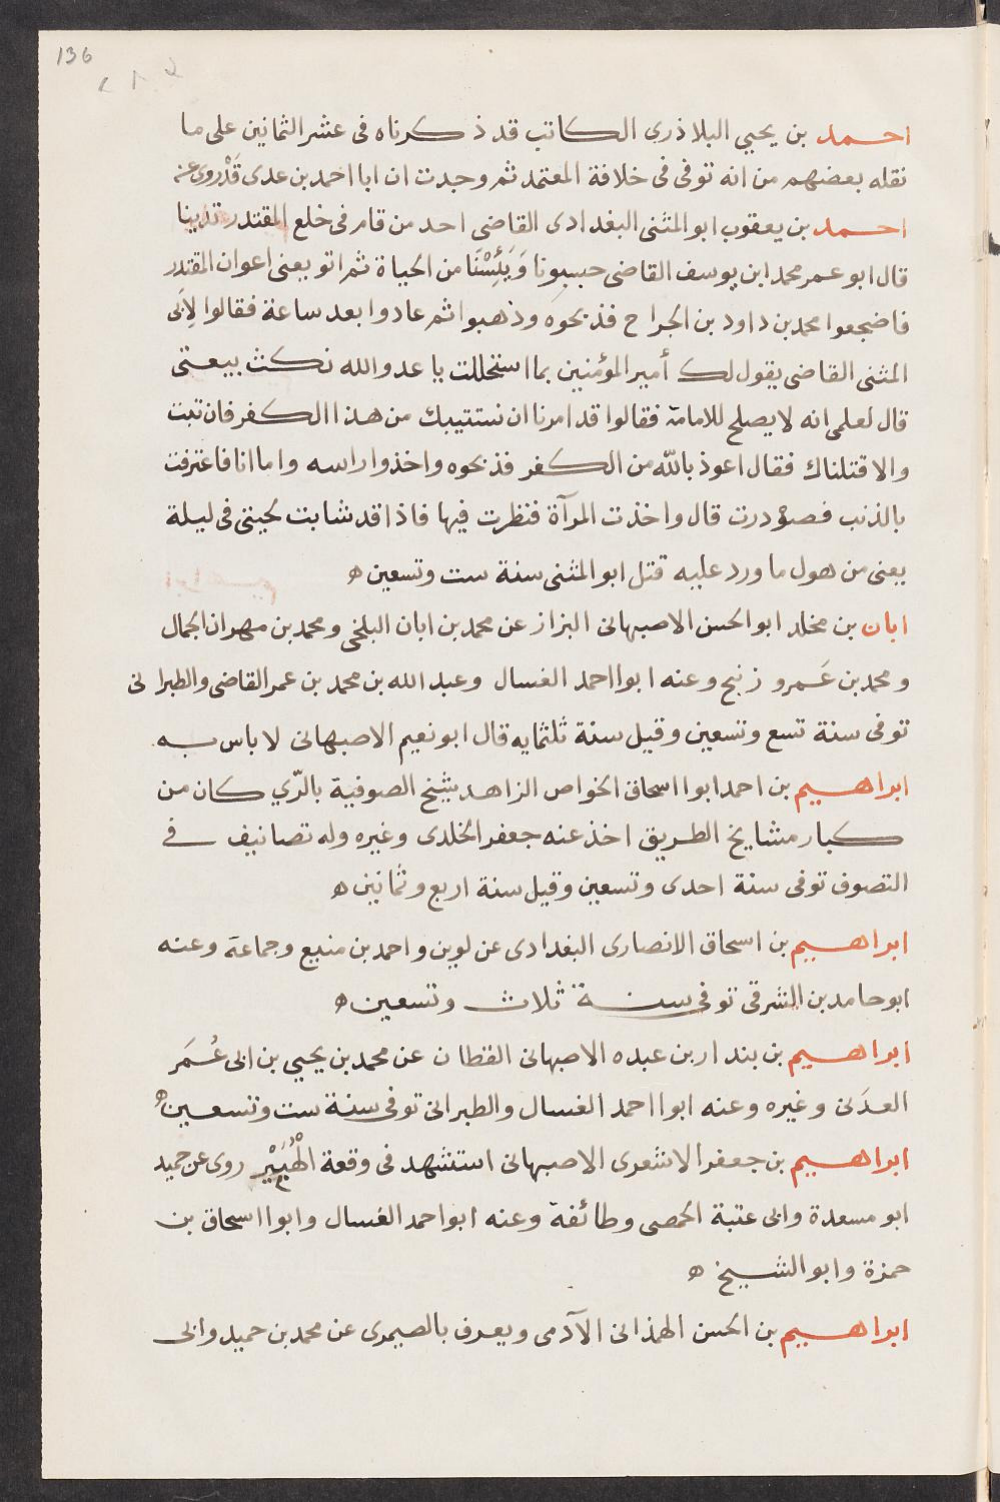 136
احمد بن يحيي البلاذرى الكاتب قد ذكرناه فى عشر الثمانين على ما
نقله بعضهم من انه توفى فى خلافة المعتمد ثم وجدت ان ابا احمد بن عدى قَدْ روى عنه
احمد بن يعقوب ابو المثنى البغدادى القاضى احد من قام فى خلع المقتدر تدينا
قال ابو عمر محمد ابن يوسف القاضى حبسونا وَيَئِسْنَا من الحياة ثم اتو يعنى اعوان المقتدر
فاضجعوا محمد بن داود بن الجراح فذبحوه وذهبوا ثم عادوا بعد ساعة فقالوا لِاَبى
المثنى القاضى يقول لك أمير المؤمنين بما استحللت يا عدو الله نكثت بيعتى
قال لعلمى انه لا يصلح للامامة فقالوا قد امرنا ان نستتيبك من هذا الكفر فان تبت
والا قتلناك فقال اعوذ بالله من الكفر فذبحوه واخذوا راسه واما انا فاعترفت
بالذنب فصودرت قال واخذت المرآة فنظرت فيها فاذا قد شابت لحيتى فى ليلة
يعنى من هول ما ورد عليه قتل ابو المثنى سنة ست وتسعين ه
ابان بن مخلد ابو الحسن الاصبهانى البزاز عن محمد بن ابان البلخى ومحمد بن مهران الجمال
ومحمد بن عَمرو زنيج وعنه ابوا احمد الغسال وعبد الله بن محمد بن عمر القاضى والطبرانى
توفى سنة تسع وتسعين وقيل سنة ثلثمايه قال ابو نعيم الاصبهانى لا باس به
ابراهيم بن احمد ابوا اسحاق الخواص الزاهد شيخ الصوفية بالرّي كان من
كبار مشايخ الطريق اخذ عنه جعفر الخلدى وغيره وله تصانيف فى
التصوف توفى سنة احدى وتسعين وقيل سنة اربع وثمانين ه
ابراهيم بن اسحاق الانصارى البغدادى عن لوين واحمد بن منيع وجماعة وعنه
ابو حامد بن الشرقى توفى سنة ثلاث وتسعين ه
ابراهيم بن بندار بن عبده الاصبهانى القطان عن محمد بن يحيي بن ابى عُمَر
العدَنى وغيره وعنه ابوا احمد الغسال والطبرانى توفى سنة ست وتسعين ه
ابراهيم بن جعفر الاشعرى الاصبهانى استشهد فى وقعة الْهُبَيْر روى عن حميد
ابو مسعدة وابى عتبة الحمصى وطائفة وعنه ابو احمد الغسال وابوا اسحاق بن
حمزة وابو الشيخ ه
ابراهيم بن الحسن الهمذانى الآدمى ويعرف بالصيمرى عن محمد بن حميد وابى